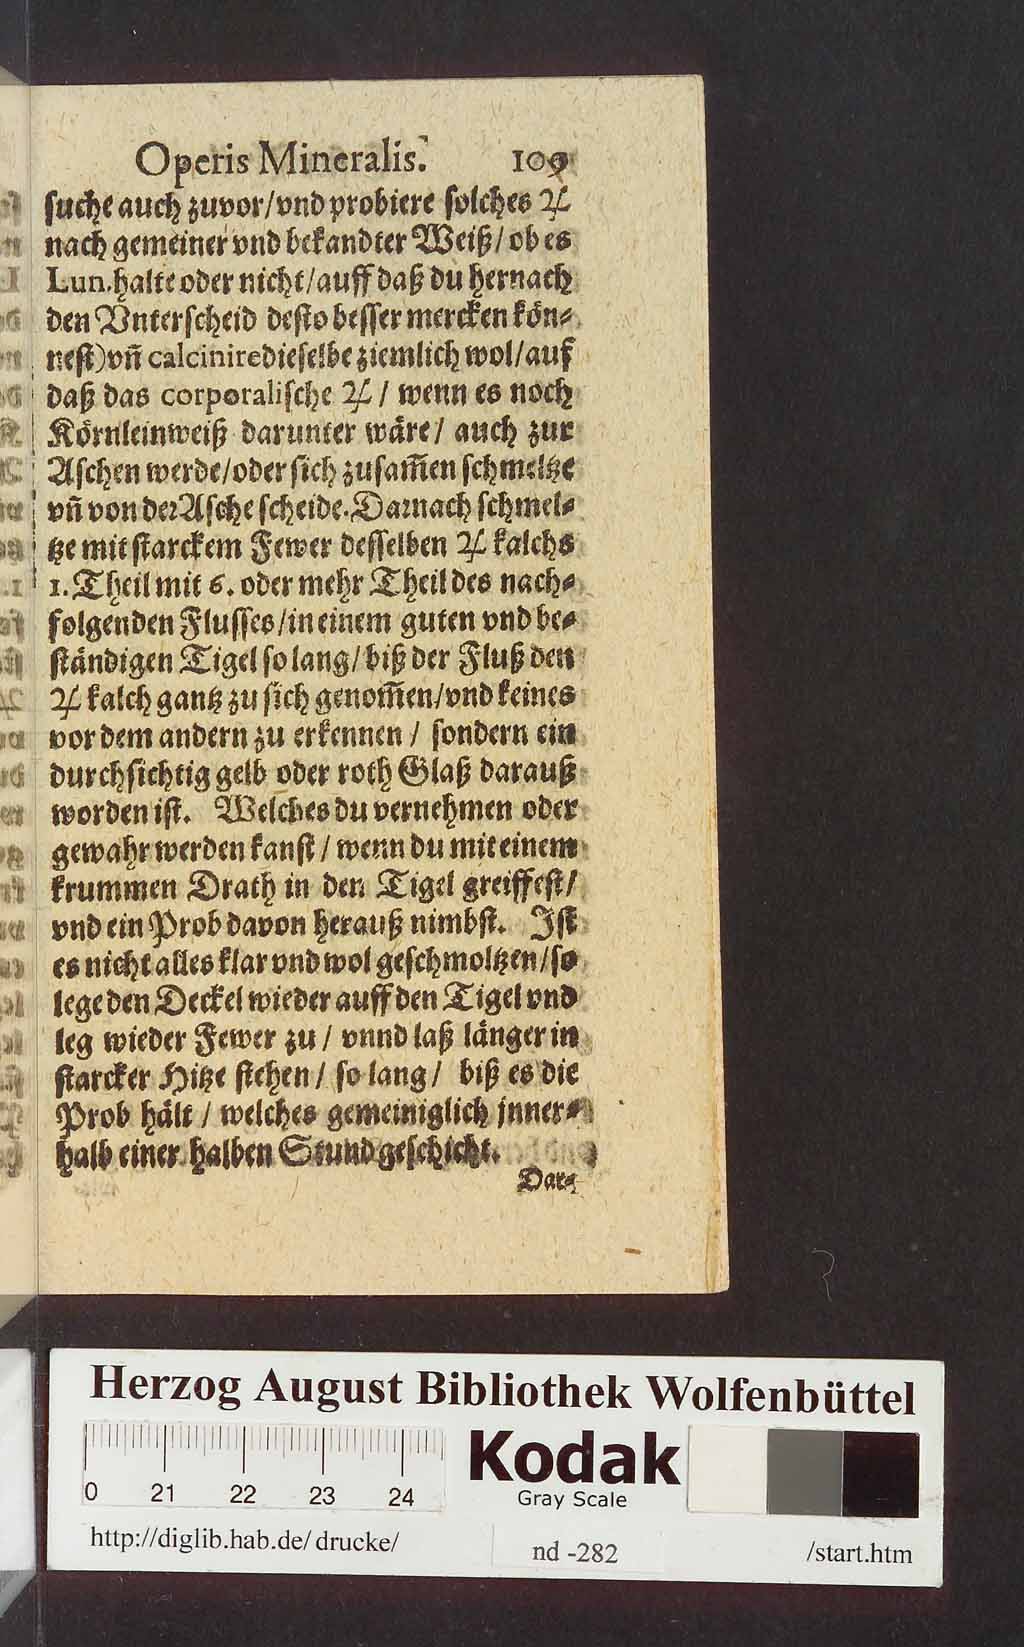 Operis Mineralis. 109
suche auch zuvor/vnd probiere solches ♃
nach gemeiner vnd bekandter Weiß/ ob es
Lun. halte oder nicht/auff daß du hernach
den Vnterscheid desto besser mercken kön⸗
nest) vn̄ calcinire dieselbe ziemlich wol/auf
daß das corporalische ♃ / wenn es noch
Körnleinweiß darunter wäre/ auch zur
Aschen werde/oder sich zusam̄en schmeltze
vn̄ von der Asche scheide. Darnach schmel⸗
tze mit starckem Fewer desselben ♃ kalchs
1. Theil mit 6. oder mehr Theil des nach⸗
folgenden Flusses/in einem guten vnd be⸗
ständigen Tigel so lang/ biß der Fluß den
♃ kalch gantz zu sich genom̄en/vnd keines
vor dem andern zu erkennen / sondern ein
durchsichtig gelb oder roth Glaß darauß
worden ist. Welches du vernehmen oder
gewahr werden kanst / wenn du mit einem
krummen Drath in den Tigel greiffest/
vnd ein Prob davon herauß nimbst. Ist
es nicht alles klar vnd wol geschmoltzen/so
lege den Deckel wieder auff den Tigel vnd
leg wieder Fewer zu / vnnd laß länger in
starcker Hitze stehen/ so lang/ biß es die
Prob hält / welches gemeiniglich jnner⸗
halb einer halben Stund geschicht.
Dar⸗
Herzog August Bibliothek Wolfenbüttel
0 21 22 23 24
Kodak
Gray Scale
http://diglib.hab.de/ drucke/ nd -282 /start.htm